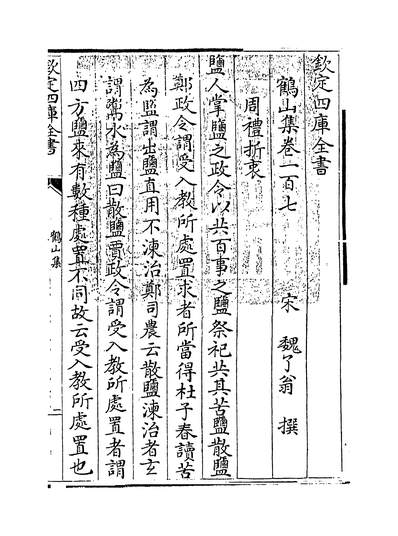 欽定四庫全書
鶴山集卷一百七
宋 魏了翁 撰
周禮折衷
鹽人掌鹽之政令以共百事之鹽祭祀共其苦鹽散鹽
鄭政令謂受入教所處置求者所當得杜子春讀苦
為盬謂出鹽直用不湅治鄭司農云散鹽湅治者玄
謂鬻水為鹽曰散鹽賈政令謂受入教所處置者謂
四方鹽來有數種處置不同故云受入教所處置也
欽定四庫全書
鶴山集